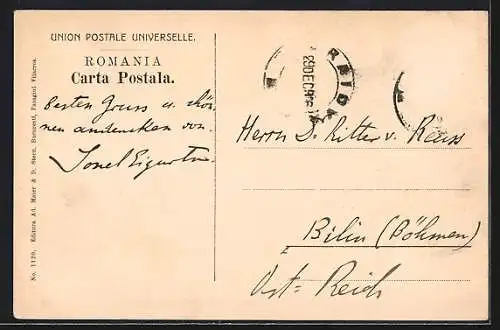 UNION POSTALE UNIVERSELLE.
ROMANIA
Carta Postala.
besten Gruss u. schö-
nen andenken von
Ionel
No. 1120. Editura Ad. Maier & D. Stern, Bucuresti, Pasagiul Villacros.
29DEC
Herrn D. Ritter v. Reuss
Bilin (Böhmen)
Öst= Reich